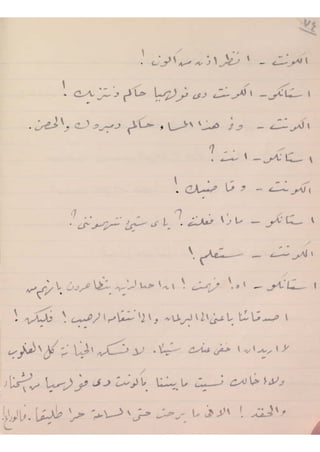 ٧٤
الكونت – انظر اذن من اكون !
استانكو – الكونت دى فولهميا حاكم فنتزيك !
الكونت – وفى هذا المساء حاكم دمبرون والحصن.
استانكو – انت ؟
الكونت – وقاضيك !
استانكو – ماذا فعلت ؟ باى شيئ تتهموننى ؟
الكونت – ستعلم !
استانكو – اه ! فهمت ! ان احد الذين يتظاهرون بانهم من
اصدقائنا باعنى الى البرلمان والى انتقامه الرهيب ! فليكن !
لا اريد ان اخفى عنك شيئا. لا تسكن الخيانة كل القلوب
ولا اخالك نسيت ما بيننا يا كونت دى فولهميا من الشحناء
والحقد ! الا فى ما برحت حتى الساعة حرا طليقا. فالوداع !